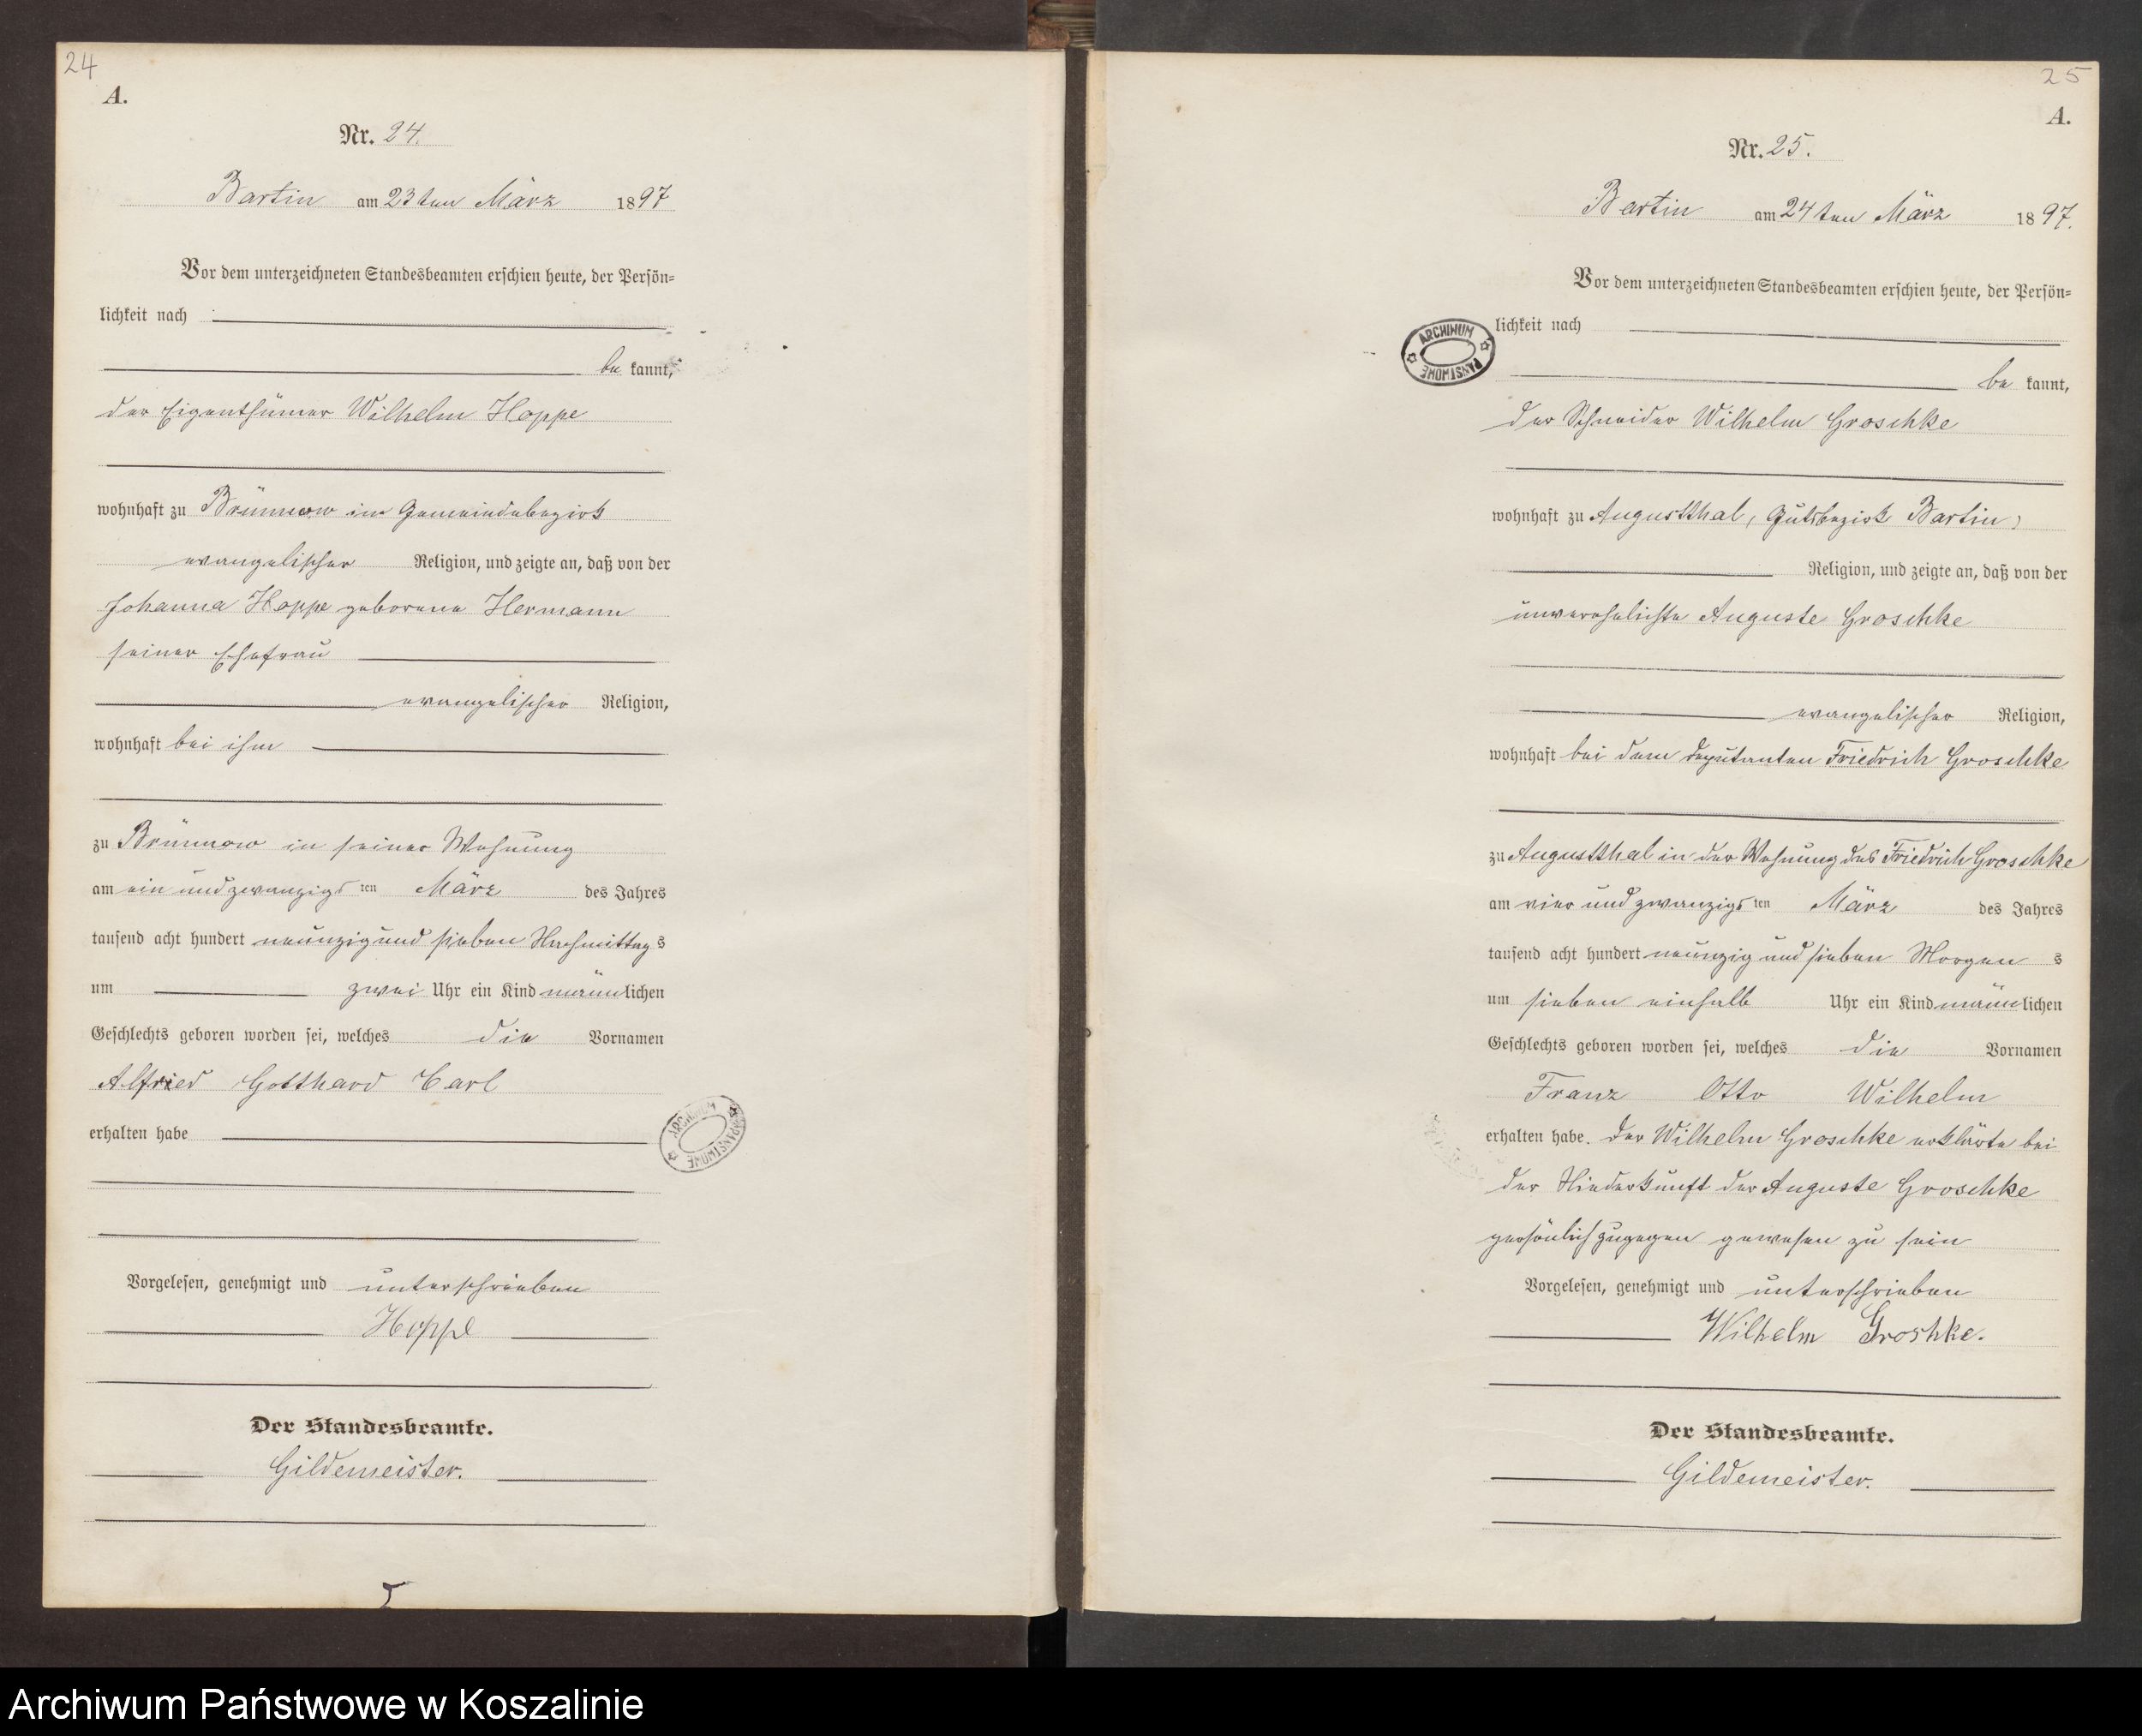 24
A.
Nr. 24.
Bartin am 23ten März 1897
Vor dem unterzeichneten Standesbeamten erschien heute, der Persön-
lichkeit nach
be kannt,
der Eigenthümer Wilhelm Hoppe
wohnhaft zu Brünnow im Gemeindebezirk
evangelischer Religion, und zeigte an, daß von der
Johanna Hoppe geborene Hermann
seiner Ehefrau
evangelischer Religion,
wohnhaft bei ihm
zu Brünnow in seiner Wohnung
am ein und zwanzigsten März des Jahres
tausend acht hundert neunzig und sieben Nachmittags
um zwei Uhr ein Kind männlichen
Geschlechts geboren worden sei, welches die Vornamen
Alfried Gotthard Carl
erhalten habe
ARCHIWUM PAŃSTWOWE
Vorgelesen, genehmigt und unterschrieben
Hoppe
Der Standesbeamte.
Gildemeister.
25
A.
Nr. 25.
Bartin am 24ten März 1897.
Vor dem unterzeichneten Standesbeamten erschien heute, der Persön-
lichkeit nach
ARCHIWUM PAŃSTWOWE
be kannt,
der Schneider Wilhelm Groschke
wohnhaft zu Augustthal, Gutsbezirk Bartin,
Religion, und zeigte an, daß von der
unverehelichte Auguste Groschke
evangelischer Religion,
wohnhaft bei dem Deputanten Friedrich Groschke
zu Augustthal in der Wohnung des Friedrich Groschke
am vier und zwanzigsten März des Jahres
tausend acht hundert neunzig und sieben Morgens
um sieben einhalb Uhr ein Kind männlichen
Geschlechts geboren worden sei, welches die Vornamen
Franz Otto Wilhelm
erhalten habe. Der Wilhelm Groschke erklärte bei
der Niederkunft der Auguste Groschke
persönlich zugegen gewesen zu sein
Vorgelesen, genehmigt und unterschrieben
Wilhelm Groshke.
Der Standesbeamte.
Gildemeister.
Archiwum Państwowe w Koszalinie